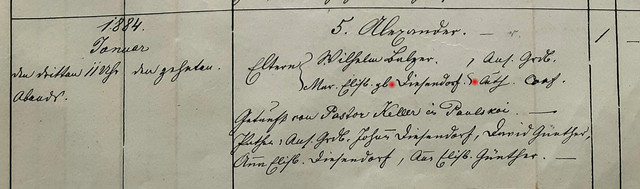 1884.
Januar
den dritten 11 Uhr den zehnten.
Abends.
5. Alexander. —
Eltern Wilhelm Balzer. , Ans. Grdb.
Mar. Elis. gb. Diesendorf. Luth. Conf.
Getauft von Pastor Keller in Paulskoi. —
Pathe: Ans. Grdb. Johann Diesendorf, David Günther,
Anna Elisb. Diesendorf, Ana Elisb. Günther. —
1